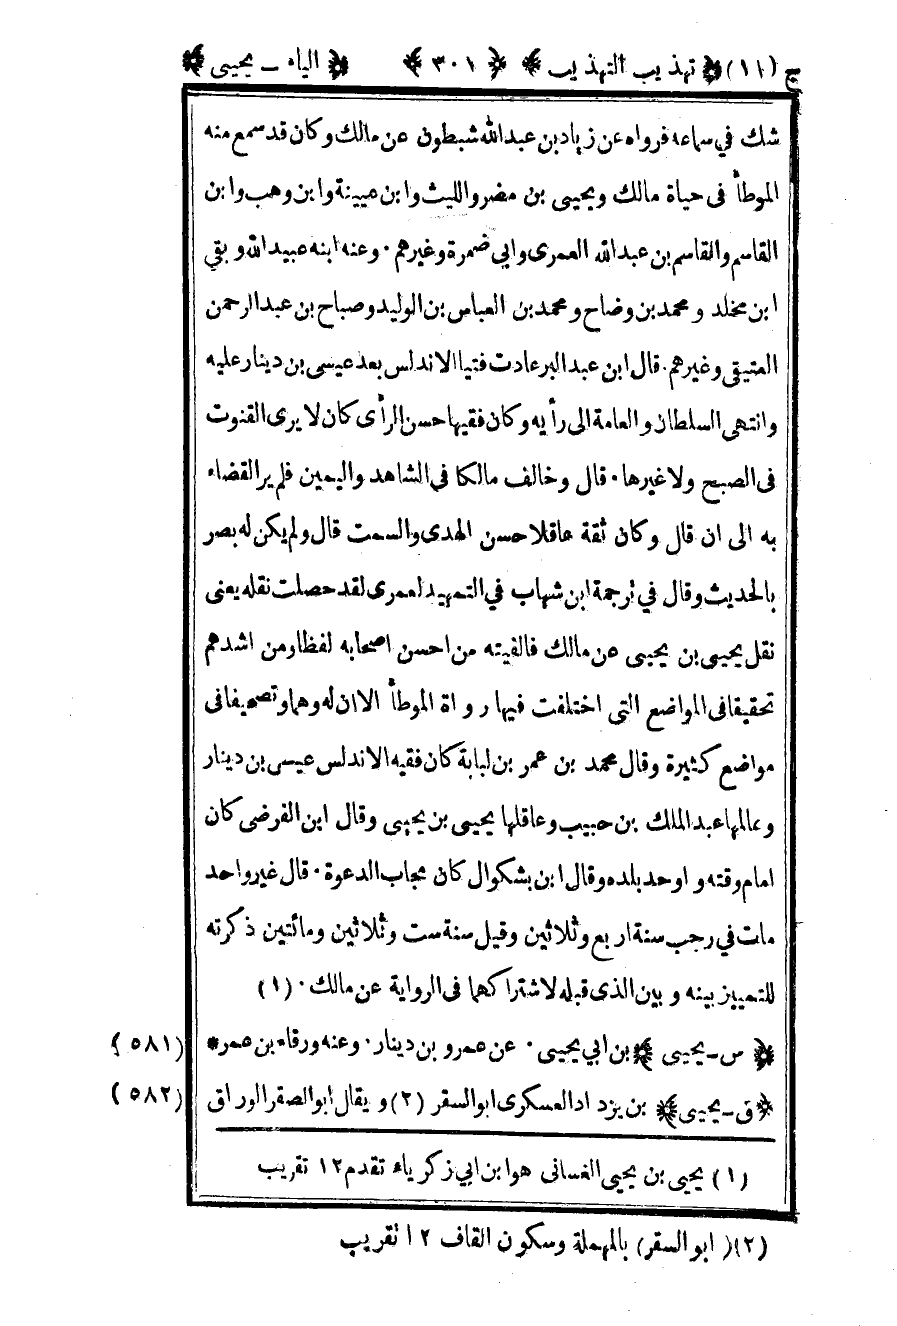 ج (١١) ﴿تهذيب التهذيب﴾ ﴿٣٠١﴾ ﴿الياء ـ يحيى﴾
شك في سماعه فرواه عن زياد بن عبد الله شبطون عن مالك وكان قد سمع منه
الموطأ فى حياة مالك ويحيى بن مضر والليث وابن عيينة وابن وهب وابن
القاسم والقاسم بن عبد الله العمرى وابي ضمرة وغيرهم · وعنه ابنه عبيد الله وبقي
ابن مخلد ومحمد بن وضاح ومحمد بن العباس بن الوليد وصباح بن عبد الرحمن
العتيقى وغيرهم · قال ابن عبد البر عادت فتيا الاندلس بعد عيسى بن دينار عليه
وانتهى السلطان والعامة الى رأيه وكان فقيها حسن الرأى كان لا يرى القنوت
فى الصبح ولا غيرها · قال وخالف مالكا في الشاهد واليمين فلم ير القضاء
به الى ان قال وكان ثقة عاقلا حسن الهدى والسمت قال ولم يكن له بصر
بالحديث وقال في ترجمة ابن شهاب في التمهيد لعمرى لقد حصلت نقله يعنى
نقل يحيى بن يحيى عن مالك فالفيته من احسن اصحابه لفظا ومن اشدهم
تحقيقا فى المواضع التى اختلفت فيها رواة الموطأ الا ان له وهما وتصحيفا فى
مواضع كثيرة وقال محمد بن عمر بن لبابة كان فقيه الاندلس عيسى بن دينار
وعالمها عبد الملك بن حبيب وعاقلها يحيى بن يحيى وقال ابن الفرضى كان
امام وقته واوحد بلده وقال ابن بشكوال كان مجاب الدعوة · قال غير واحد
مات في رجب سنة اربع وثلاثين وقيل سنة ست وثلاثين ومائتين ذكرته
للتمييز بينه وبين الذى قبله لاشتراكهما فى الرواية عن مالك · (١)
(٥٨١) ﴿س ـ يحيى﴾ بن ابي يحيى · عن عمرو بن دينار · وعنه ورقاء بن عمر *
(٥٨٢) ﴿ق ـ يحيى﴾ بن يزداد العسكرى ابو السقر (٢) ويقال ابو الصقر الوراق
(١) يحيى بن يحيى الغسانى هو ابن ابي زكرياء تقدم ١٢ تقريب
(٢) (ابو السقر) بالمهملة وسكون القاف ١٢ تقريب